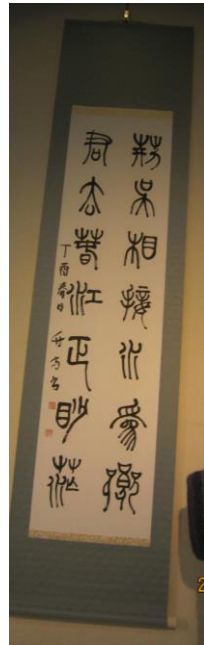 荊吳相接水爲鄉
君去萅江正眇茫
丁酉春日
2